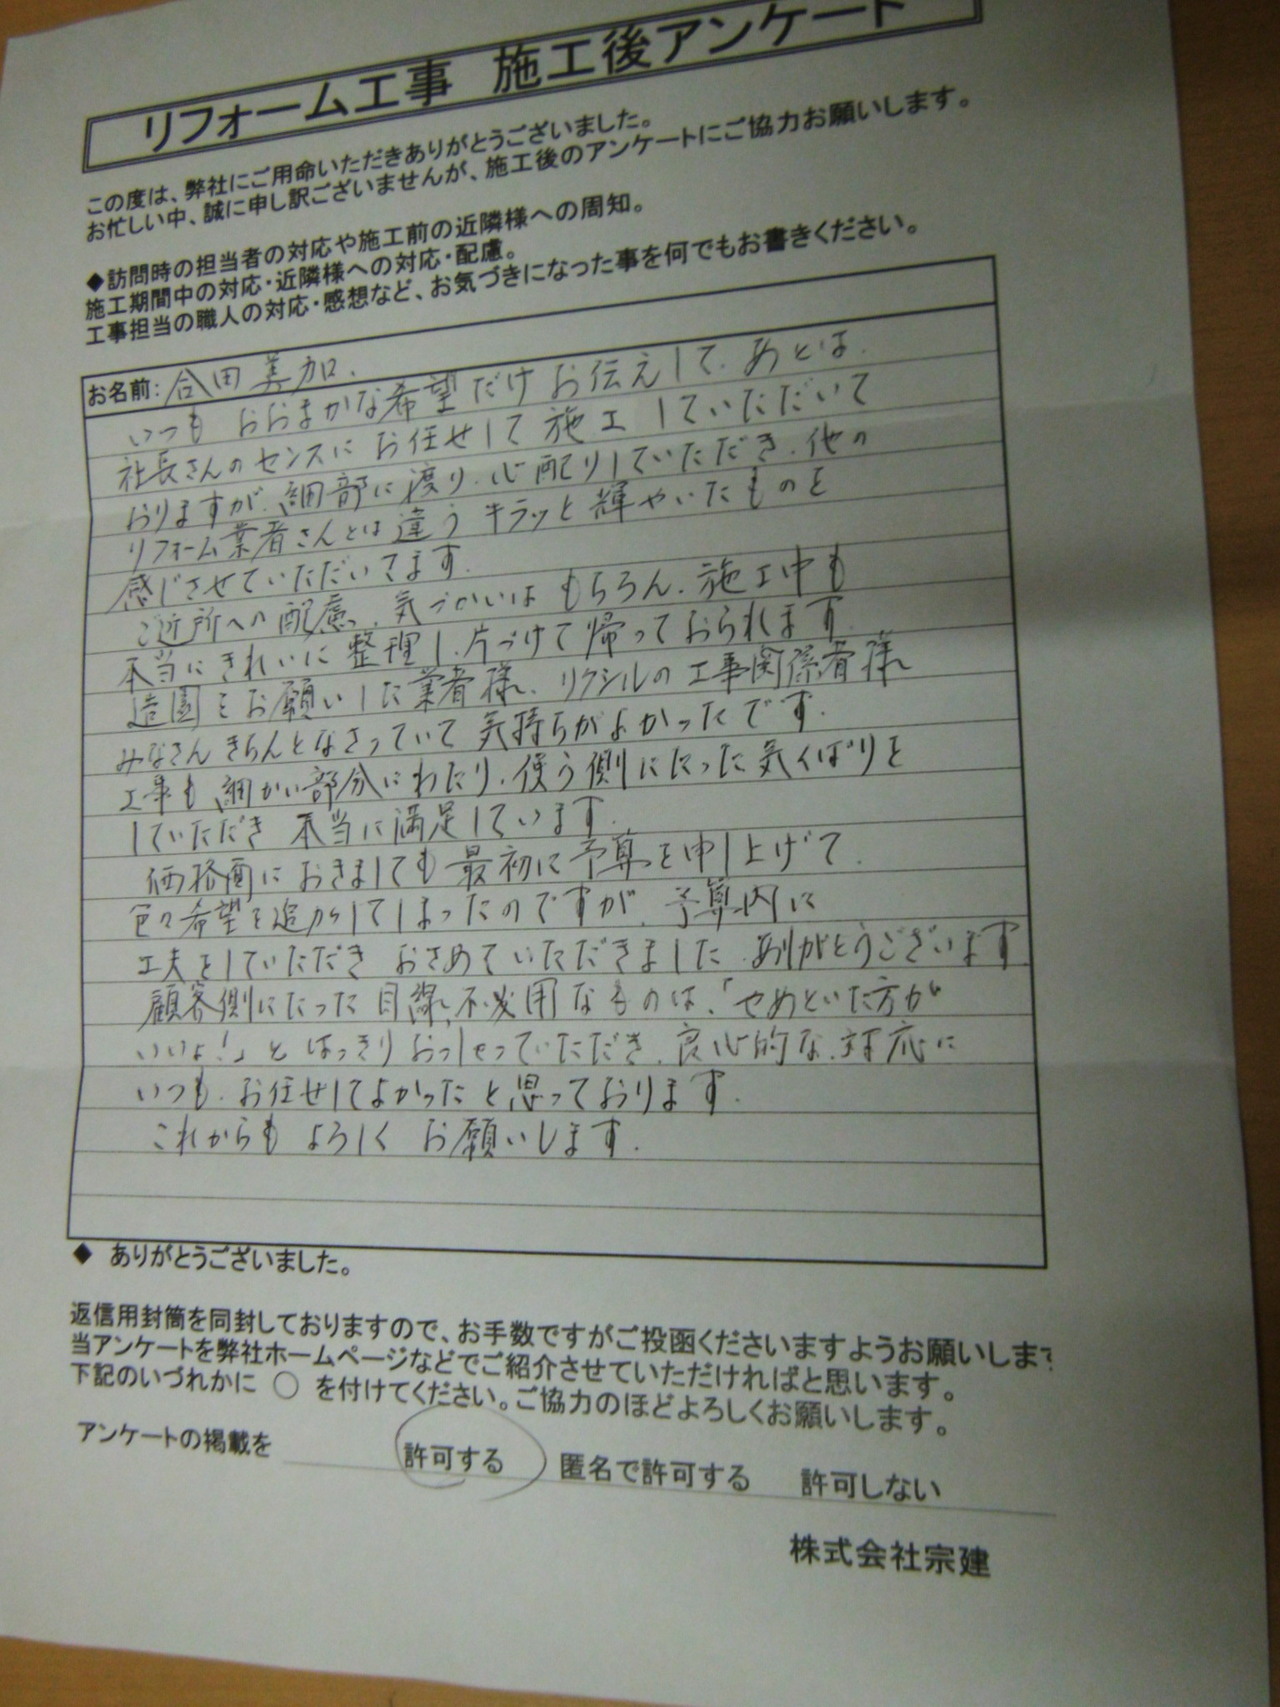 リフォーム工事 施工後アンケート
この度は、弊社にご用命いただきありがとうございました。
お忙しい中、誠に申し訳ございませんが、施工後のアンケートにご協力お願いします。
◆訪問時の担当者の対応や施工前の近隣様への周知。
施工期間中の対応・近隣様への対応・配慮。
工事担当の職人の対応・感想など、お気づきになった事を何でもお書きください。
お名前: 合田美加.
いつも おおまかな希望だけ お伝えして、あとは、
社長さんのセンスに お任せして 施工 していただいて
おりますが、細部に渡り、心配りしていただき、他の
リフォーム業者さんとは違う キラッと輝やいたものを
感じさせていただいてます。
ご近所への配慮、気づかいは もちろん、施工中も
本当にきれいに 整理し、片づけて帰っておられます。
造園をお願いした業者様、リクシルの工事関係者様
みなさん きちんとなさっていて 気持ちがよかったです。
工事も、細かい部分にわたり、使う側にたった気くばりを
していただき 本当に満足しています。
価格面に おきましても 最初に予算を申し上げて、
色々希望を追加してしまったのですが、予算内に
工夫をしていただき おさめていただきました。ありがとうございます
顧客側にたった目線、不必用なものは、「やめといた方が
いいよ!」と はっきり おっしゃっていただき、良心的な、対応に
いつも、お任せしてよかったと思っております。
これからも よろしく お願いします。
◆ ありがとうございました。
返信用封筒を同封しておりますので、お手数ですがご投函くださいますようお願いします
当アンケートを弊社ホームページなどでご紹介させていただければと思います。
下記のいづれかに ○ を付けてください。ご協力のほどよろしくお願いします。
アンケートの掲載を 許可する 匿名で許可する 許可しない
株式会社宗建